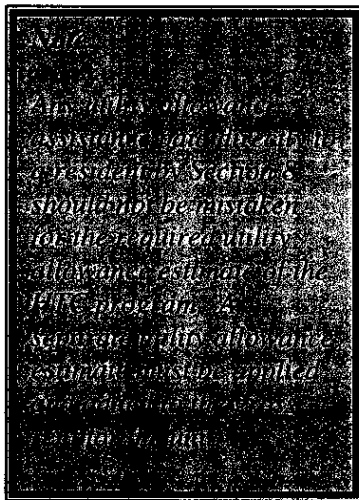 Note
Any utility allowance
assistance paid directly to
a resident by Section 8
should not be mistaken
for the required utility
allowance estimate of the
HTC program. A
separate utility allowance
estimate must be applied
and added to the